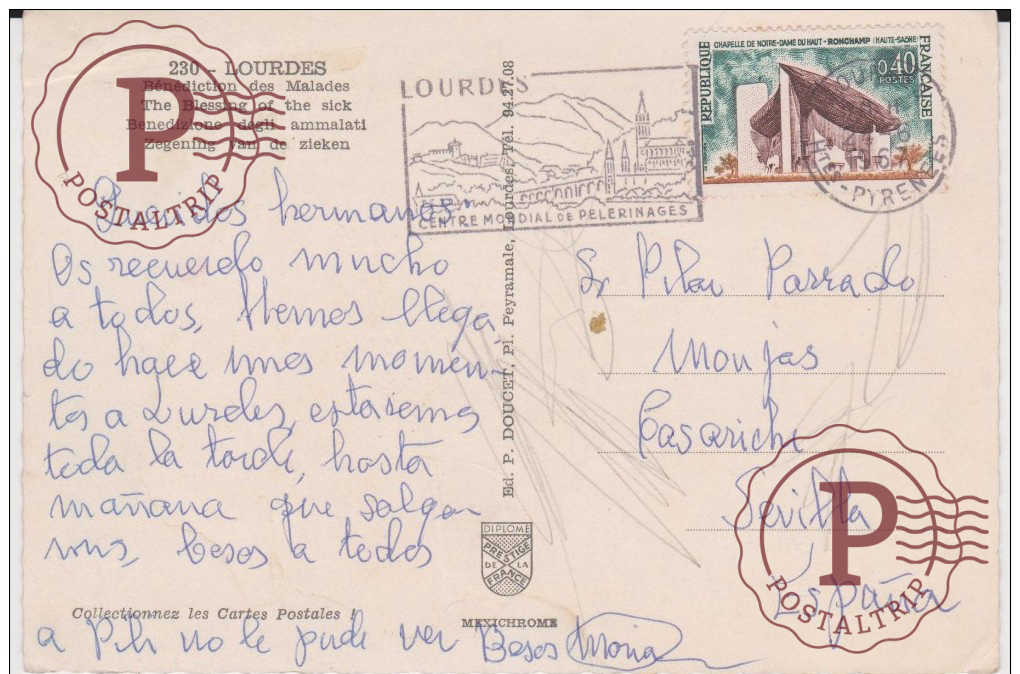 230 - LOURDES
Bénédiction des Malades
The Blessing of the sick
Benedizione degli ammalati
Zegening van de zieken
POSTALTRIP
Queridos hermanos
Os recuerdo mucho
a todos, Hemos llega
do hace unos momen-
tos a Lurdes, estaremos
toda la tarde, hasta
mañana que salga
mos, besos a todos
Collectionnez les Cartes Postales !
a Pili no le pude ver Besos Maria
Ed. P. DOUCET, Pl. Peyramale, Lourdes, Tél. 94.27.08
DIPLOME
PRESTIGE
DE LA
FRANCE
MEXICHROME
LOURDES
CENTRE MONDIAL DE PELERINAGES
CHAPELLE DE NOTRE-DAME DU HAUT - RONCHAMP (HAUTE-SAÔNE)
REPUBLIQUE FRANÇAISE
0,40
POSTES
HTES-PYRENEES
Sr Pilar Parrado
Monjas
Casariche
Sevilla
España
P
POSTALTRIP